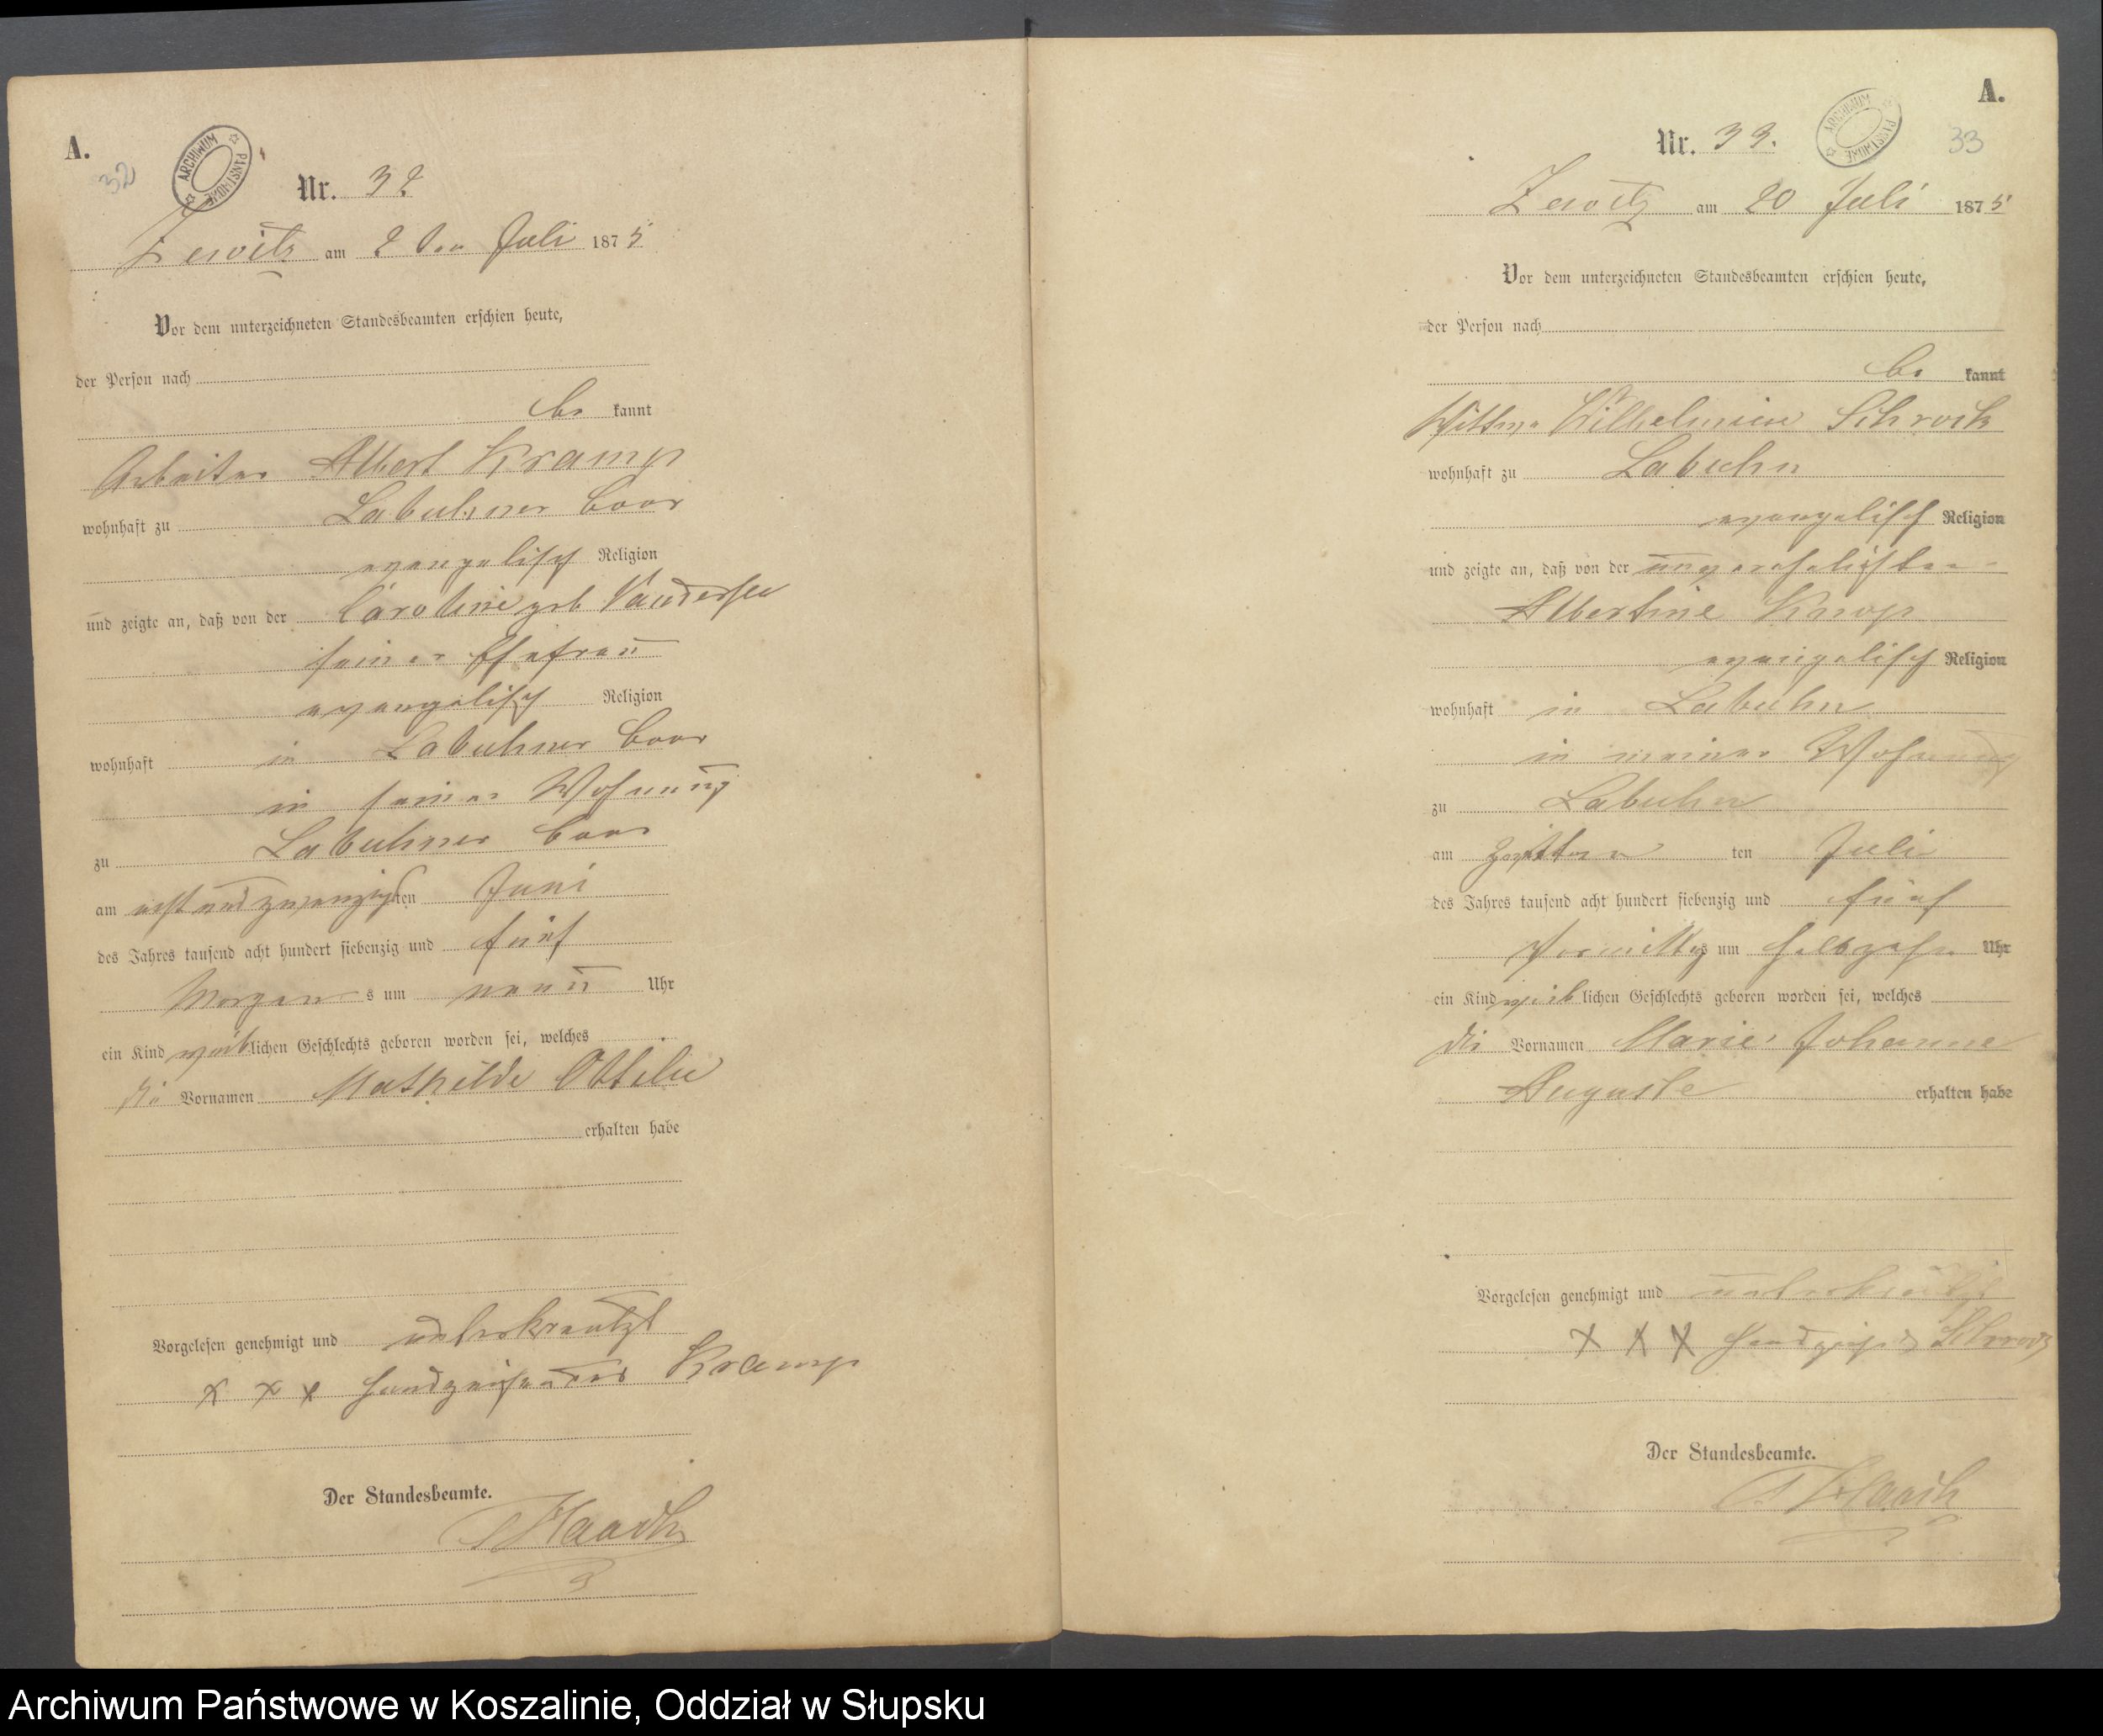 A.
32
ARCHIWUM PAŃSTWOWE
Nr. 32
Zewitz am 2 ten Juli 1875
Vor dem unterzeichneten Standesbeamten erschien heute,
der Person nach
be kannt
Arbeiter Albert Kramp
wohnhaft zu Labuhner
evangelisch Religion
und zeigte an, daß von der Caroline geb
seiner Ehefrau
evangelisch Religion
wohnhaft in Labuhner
in seiner Wohnung
zu Labuhner
am acht und zwanzigsten Juni
des Jahres tausend acht hundert siebenzig und fünf
Morgens um neun Uhr
ein Kind weiblichen Geschlechts geboren worden sei, welches
die Vornamen Mathilde Ottilie
erhalten habe
Vorgelesen genehmigt und unterkreutzt
x x x Handzeichen des Kramp
Der Standesbeamte.
A.
33
ARCHIWUM PAŃSTWOWE
Nr. 33.
Zewitz am 20 Juli 1875
Vor dem unterzeichneten Standesbeamten erschien heute,
der Person nach
be kannt
Wittwe Wilhelmine Schrock
wohnhaft zu Labuhn
evangelisch Religion
und zeigte an, daß von der unverehelichten
Albertine Knop
evangelisch Religion
wohnhaft in Labuhn
in meiner Wohnung
zu Labuhn
am ten Juli
des Jahres tausend acht hundert siebenzig und fünf
Vormittags um halbzehn Uhr
ein Kind weiblichen Geschlechts geboren worden sei, welches
die Vornamen Marie Johanne
Auguste erhalten habe
Vorgelesen genehmigt und
x x x Handzeichen Schrock
Der Standesbeamte.
Archiwum Państwowe w Koszalinie, Oddział w Słupsku